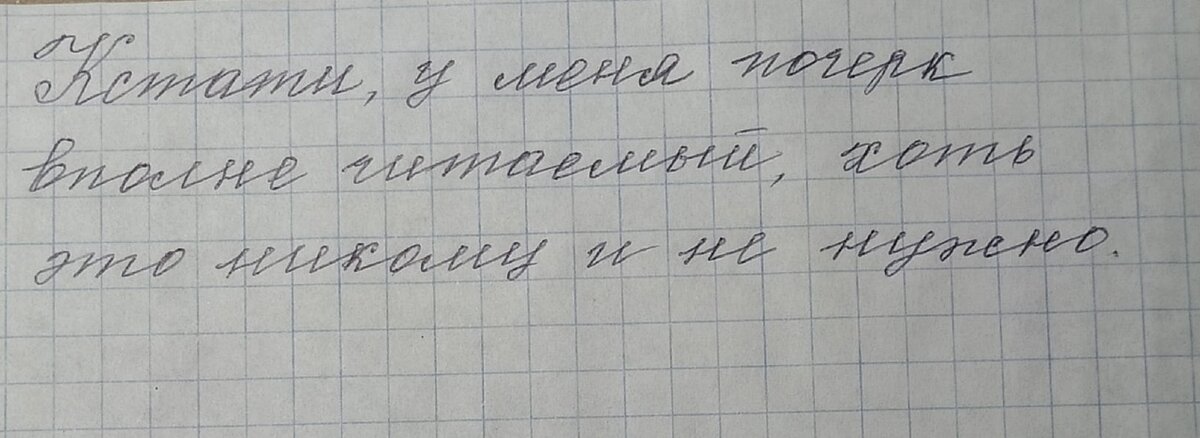 Кстати, у меня почерк
вполне читаемый, хоть
это никому и не нужно.